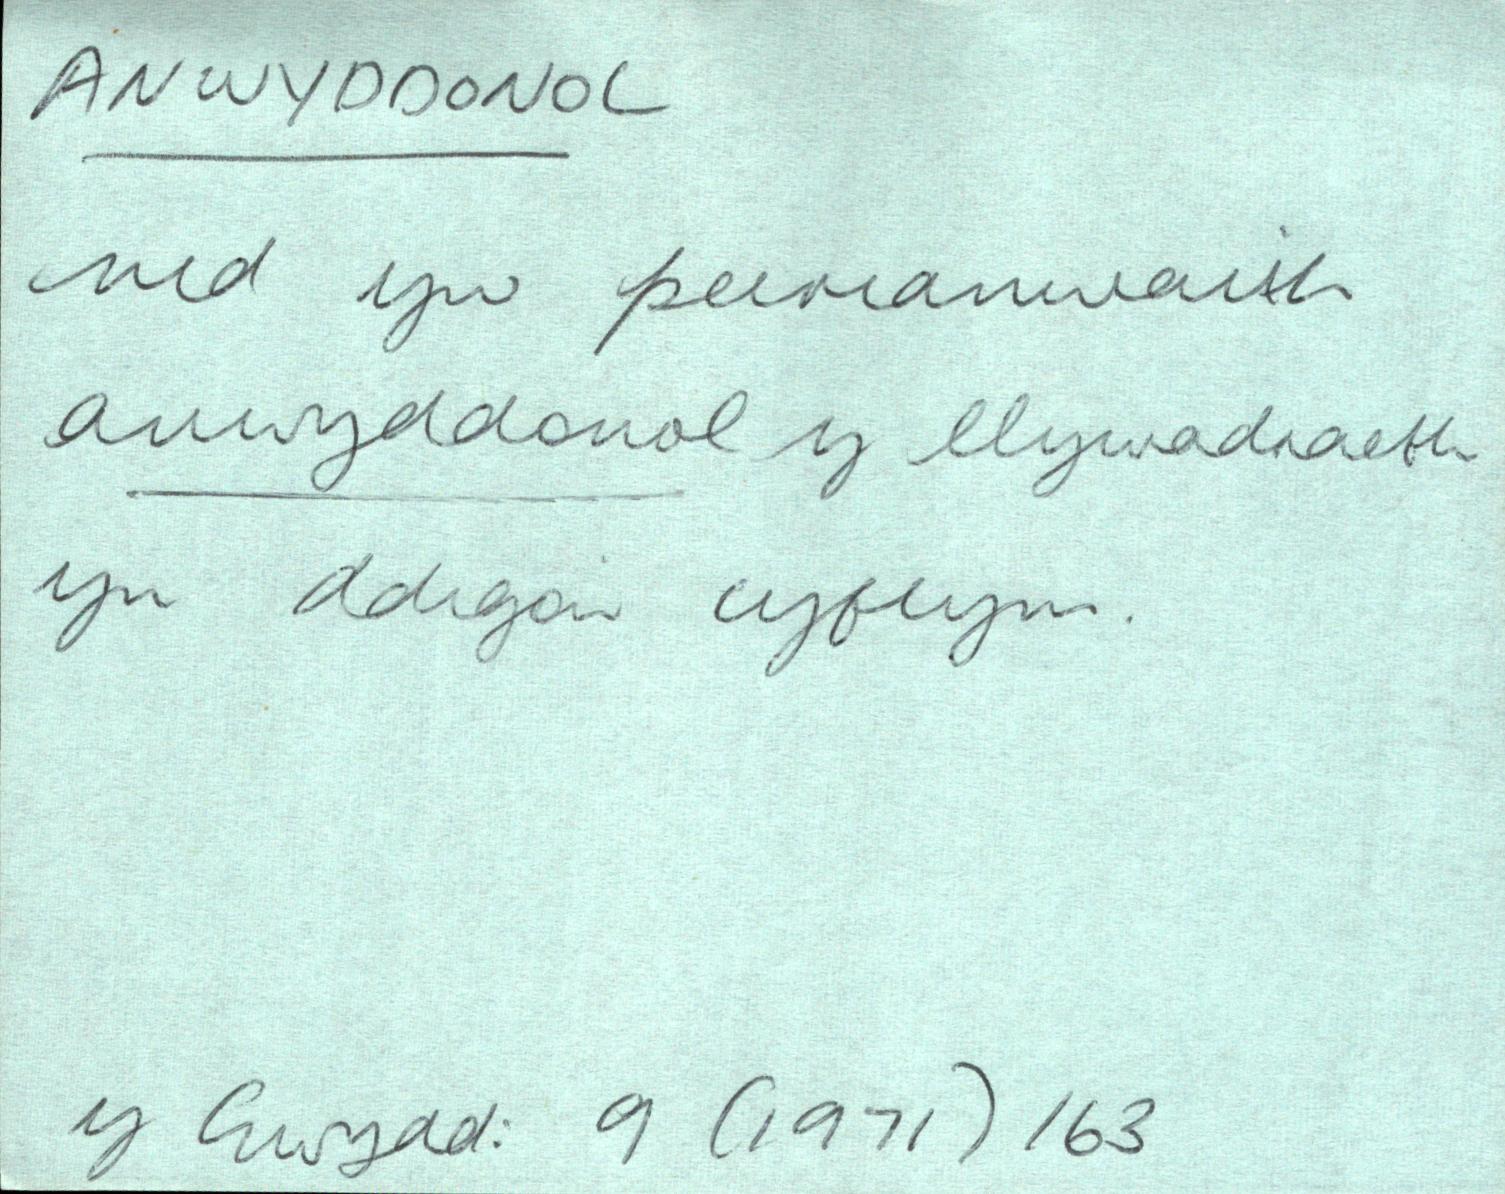 ANWYDDONOL
nid yw peirianwaith
anwyddonol y llywodraeth
yn ddigon cyflym.
y Gwydd: 9 (1971) 163